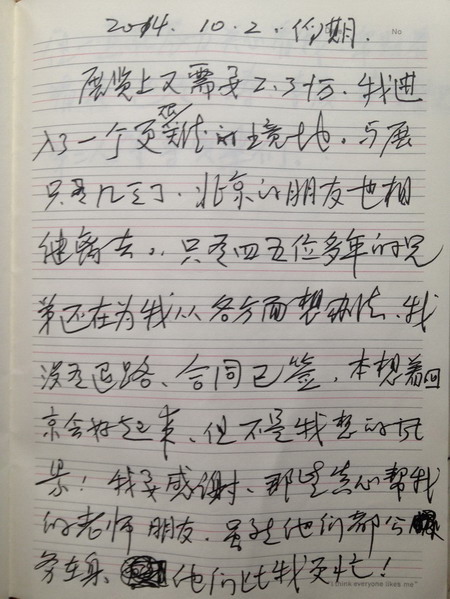 2014.10.2.假期.
No
展览上又需要2.3十万.我进
入了一个更难的境地.与展
只有几天了.北京的朋友也相
继离去..只有四五位多年的兄
弟还在为我从各方面想办法.我
没有退路、合同已签,本想着回
京会好起来,但不是我想的风
景!我要感谢、那些真心帮我
的老师朋友.虽然他们都公
务在身 他们比我更忙!
"I think everyone likes me"